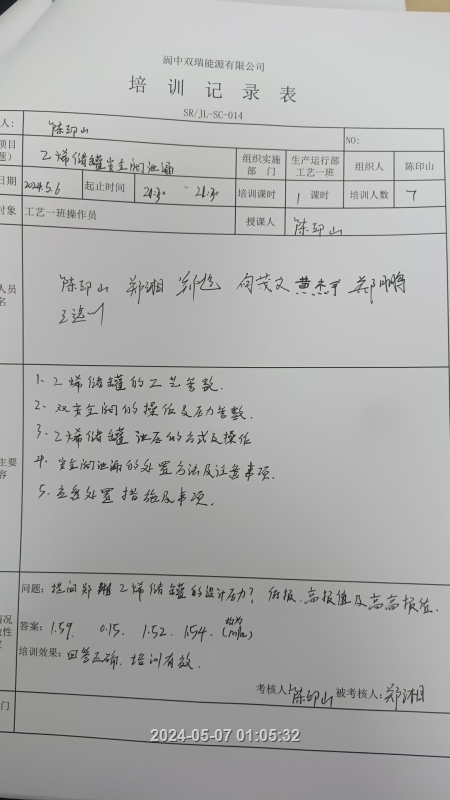 阆中双瑞能源有限公司
培训记录表
SR/JL-SC-014
人: 陈印山 NO:
项目 乙烯储罐安全阀泄漏 组织实施部门 生产运行部工艺一班 组织人 陈印山
日期 2024.5.6 起止时间 21:30 ~ 21:30 培训课时 1 课时 培训人数 7
对象 工艺一班操作员 授课人 陈印山
人员名 陈印山 郑湘 向茂文 黄杰 郑鹏
1. 乙烯储罐的工艺参数.
2. 双安全阀的操作及压力参数.
主要 3. 乙烯储罐泄压的方式及操作
容 4. 安全阀泄漏的处置方法及注意事项.
5. 应急处置措施及事项.
问题: 提问郑湘乙烯储罐的设计压力? 低报、高报值及高高报值.
情况 答案: 1.59. 0.15. 1.52. 1.54. (均为MPa)
培训效果: 回答正确. 培训有效.
考核人: 陈印山 被考核人: 郑湘
门
2024-05-07 01:05:32